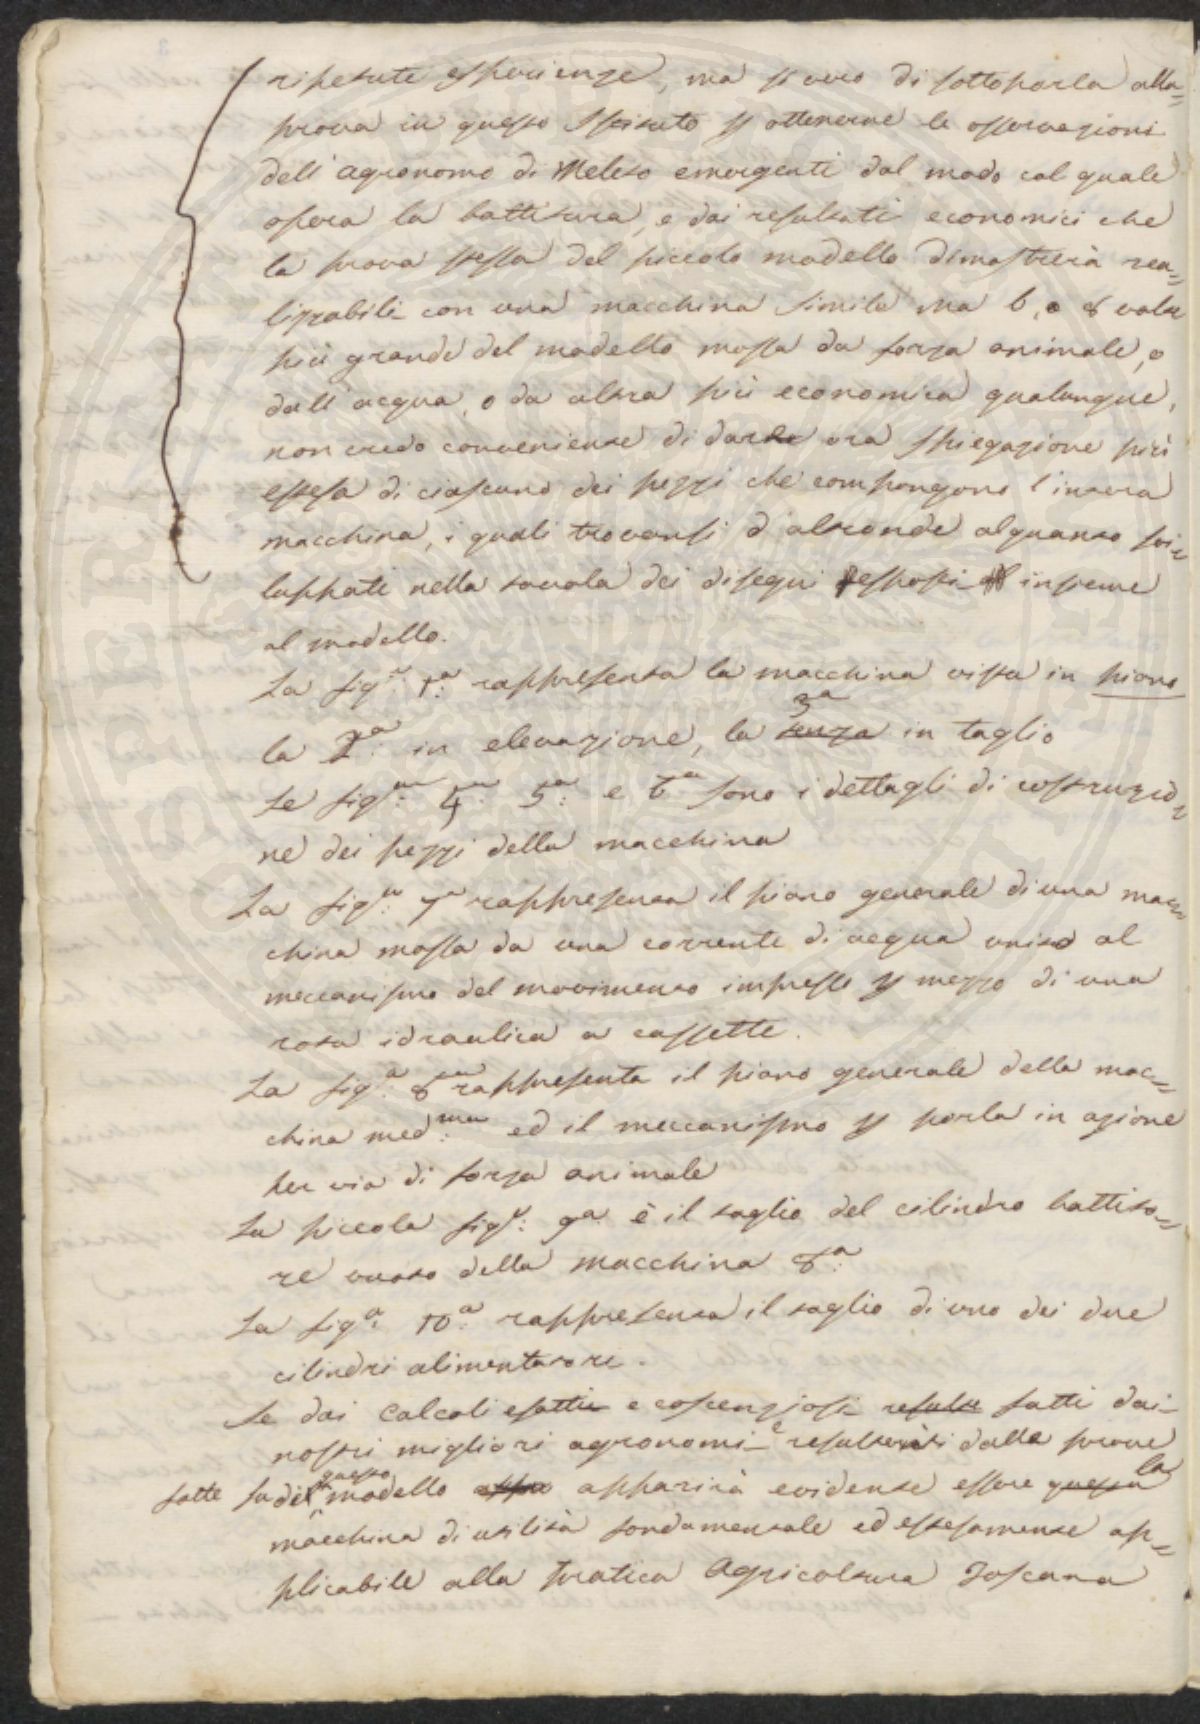 ripetute esperienze, ma si vero di sottoporla alla=
prova in questo Istituto p ottenerne le osservazioni
dell'agronomo di Meleto emergenti dal modo col quale
opera la battitura, e dai resultati economici che
la prova stessa del piccolo modello dimostrerà rea=
lizzabili con una macchina simile ma 6, o 8 volte
più grande del modello mossa da forza animale, o
dall'acqua, o da altra più economica qualunque,
non credo conveniente di darle ora spiegazione più
estesa di ciascuno dei pezzi che compongono l'intera
macchina, i quali trovansi d'altronde alquanto svi=
luppati nella tavola dei disegni esposti insieme
al modello.
La figª: 1ª: rappresenta la macchina vista in piano
la 2ª: in elevazione, la terza 3ª in taglio
Le figᵉ: 4ª: 5ª: e 6ª sono i dettagli di costruzio=
ne dei pezzi della macchina
La figª: 7ª rappresenta il piano generale di una mac=
china mossa da una corrente di acqua unito al
meccanismo del movimento impresso p mezzo di una
rota idraulica a cassette.
La figª: 8ª rappresenta il piano generale della mac=
china medᵐᵃ: ed il meccanismo p porla in azione
per via di forza animale
La piccola figª: 9ª è il taglio del cilindro battito=
re vuoto della macchina 8ª:
La figª: 10ª: rappresenta il taglio di uno dei due
cilindri alimentatori.
Se dai calcoli esatti e coscenziosi fatti dai
nostri migliori agronomi e resultati dalle prove
fatte su del questo modello apparirà evidente essere questa la
macchina di utilità fondamentale ed estesamente ap=
plicabile alla pratica Agricoltura Toscana